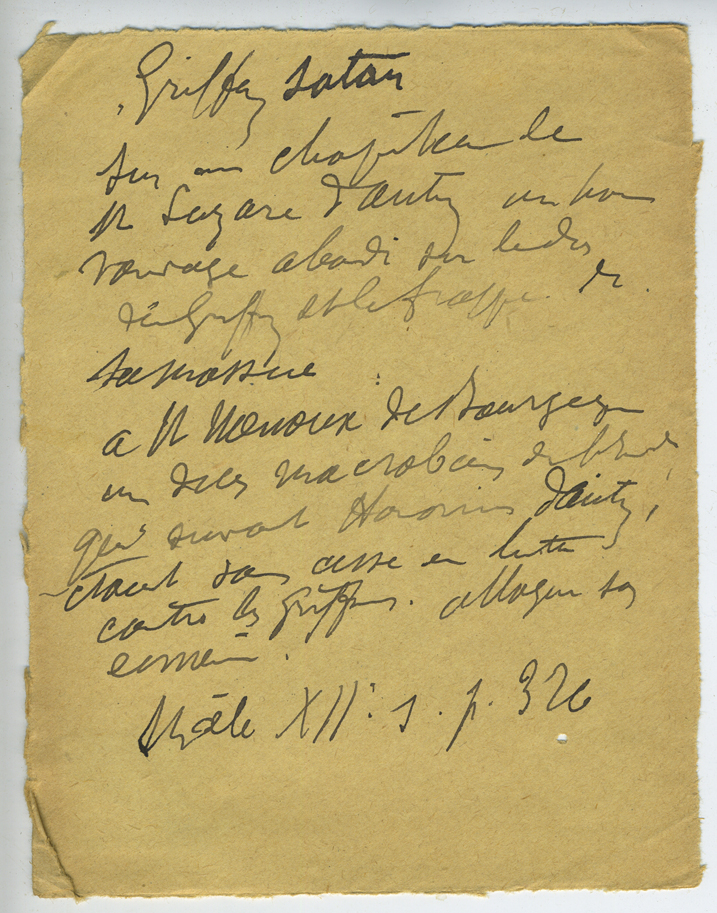 Griffon Satan
Sur un chapiteau de
St Lazare d'Autun un homme
sauvage abandi sur le dos
d'un Griffon et le frappe de
sa massue
a St Menoux de Bourgogne
un des macrobiens
qui suivant Honorius d'Autun,
étaient sans cesse en lutte
contre les griffons. attaque son
ennemi.
Mâle XII. s. p. 326